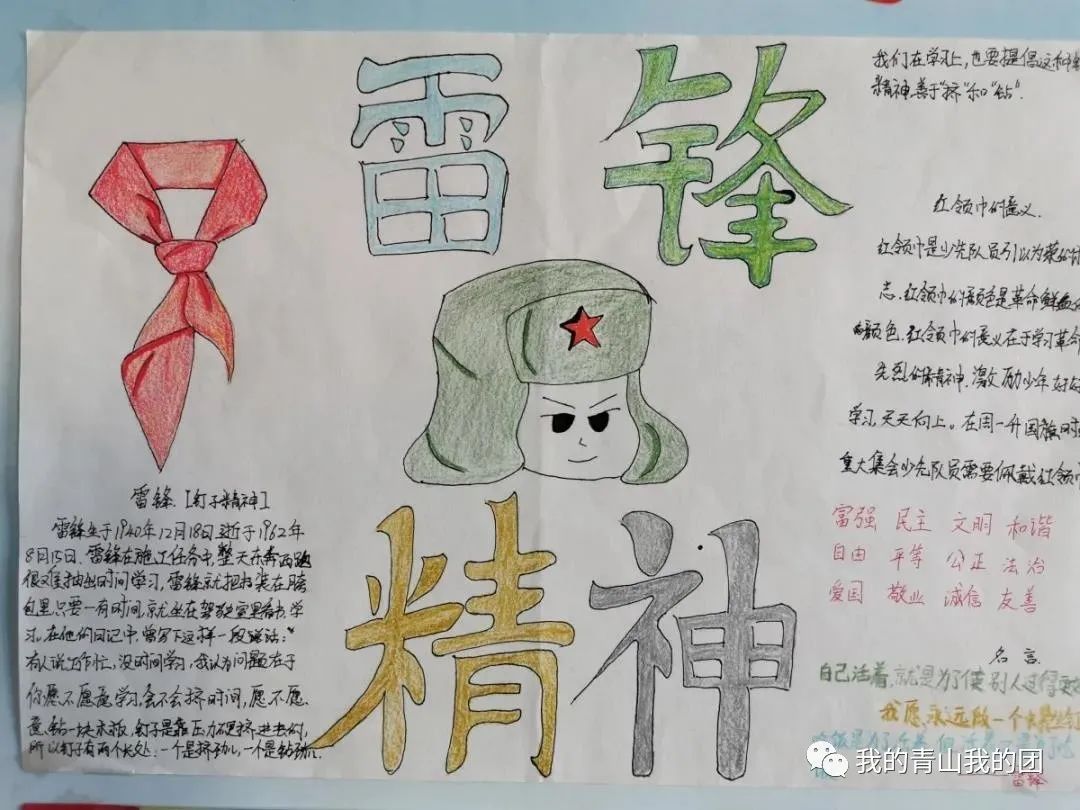 雷锋
精神
雷锋.[钉子精神]
雷锋生于1940年12月18日逝于1962年
8月15日、雷锋在施工任务中,整天东奔西跑
很难抽出时间学习,雷锋就把书装在
包里只要一有时间,就坐在驾驶室里看书学
习、在他的日记中,曾写下这样一段话:"
有人说工作忙,没时间学习,我认为问题在于
你愿不愿意学习会不会挤时间,愿不愿
意钻一块木板,钉子是靠压力硬挤进去的,
所以钉子有两个长处:一个是挤劲儿,一个是钻劲儿。
我们在学习上,也要提倡这种
精神.善于"挤"和"钻".
红领巾的意义.
红领巾是少先队员引以为荣的
志.红领巾的颜色是革命鲜血
颜色.红领巾的意义在于学习革命
先烈的精神.激励少年好好
学习,天天向上。在周一升国旗时
重大集会少先队员需要佩戴红领巾
富强 民主 文明 和谐
自由 平等 公正 法治
爱国 敬业 诚信 友善
名言.
自己活着,就是为了使别人过得更
我愿永远做一个
雷锋
我的青山我的团